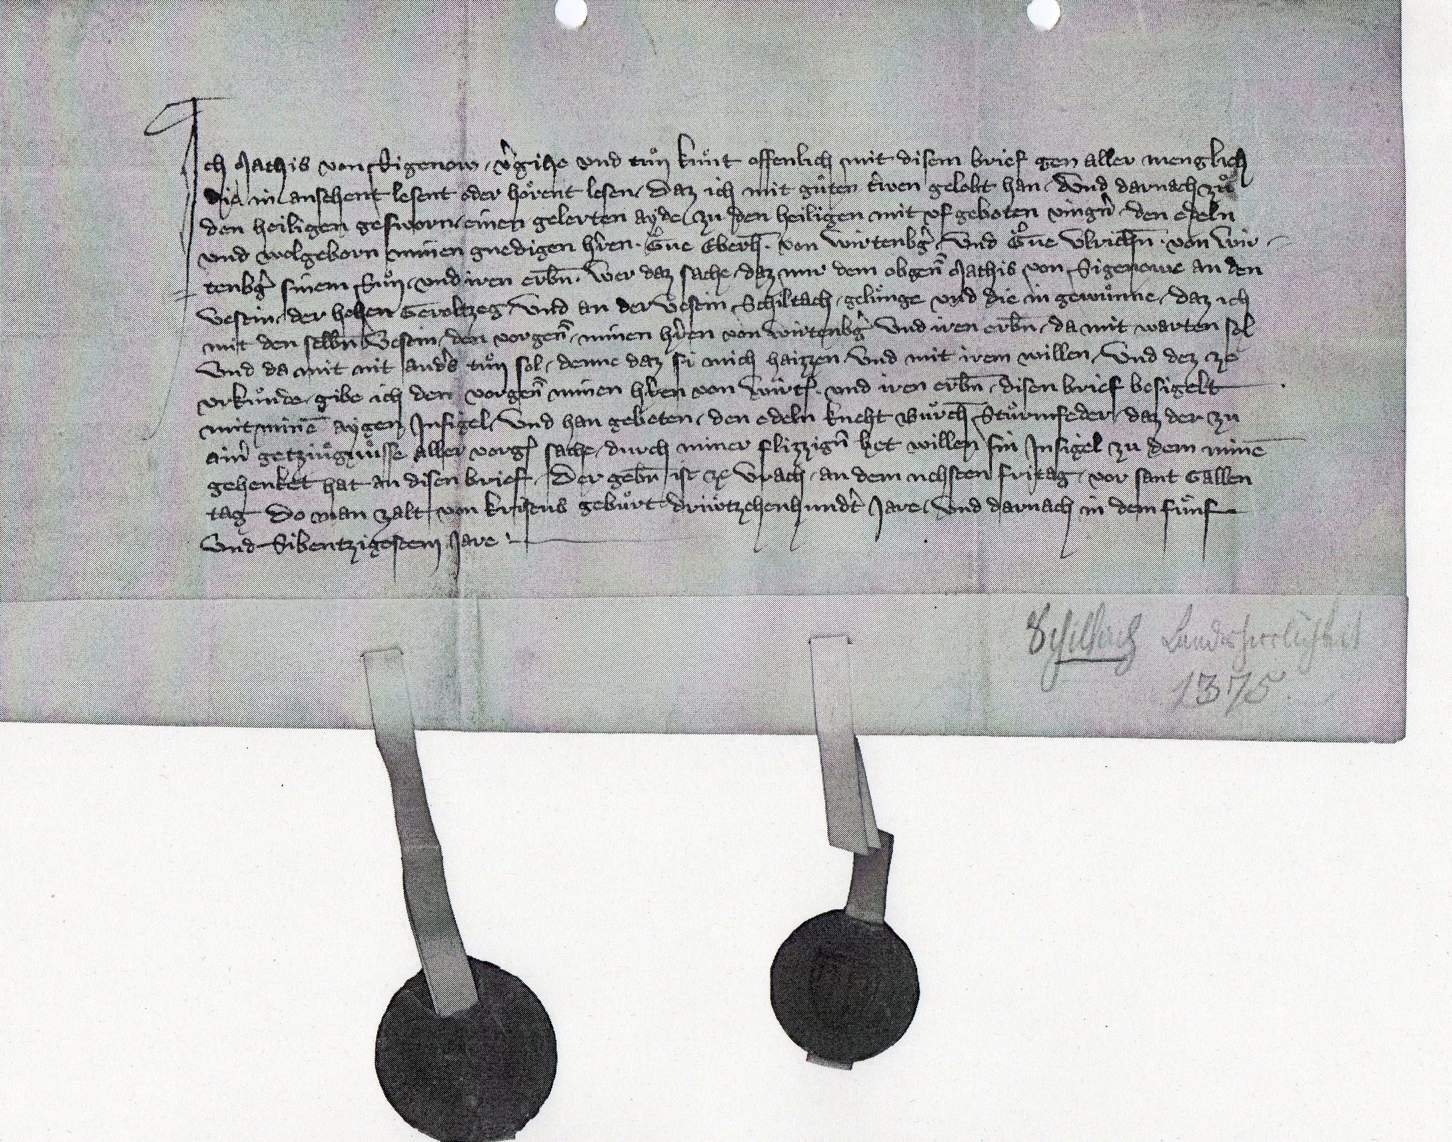 Ich Mathis von Sigenow, v'gihe vnd tuͦn kuͤnt offenlich mit disem brief gen aller menglich
die in ansehent lesent oder hoͤrent lesen, Daz ich mit guͤten triwen gelobt han, Vnd darnach zuͦ
den heiligen gesworn, einen gelerten ayde, zu den heiligen mit vf geboten vingn̄, den edeln
vnd wolgeborn minen gnedigen h'ren, Eberh̄. von Wirtenbg', Vnd Vlrichn̄ von Wir-
tenbg' sinem Suͦn, vnd iren erbn̄. Wer daz sache, daz mir dem obgen̄ Mathis von Sigenowe an den
Vestin, der hohen Geroltzeg, Vnd an der Vestin Schiltach, geluͤnge vnd die in gewuͤnne, daz ich
mit den selbn̄ Vestin, den vorgen̄, minen h'ren von Wirtenbg' Vnd iren erbn̄, da mit warten sol
Vnd da mit nit and's tuͦn sol, denne daz si mich haizzen Vnd mit irem willen, Vnd dez ze
vrkuͤnde, gibe ich den vorgen̄ minen h'ren von Wirt. vnd iren erbn̄, disen brief besigelt
mit minē aygen Insigel, Vnd han gebeten, den edeln kneht Burch̄ Stuͤrmfeder, daz der zu
ain' getzuͤgnuͤsse aller vorg sache, durch miner flizzign̄ bet willen sin Insigel zu dem minē
gehenket hat an disen brief, Der gebn̄ ist ze Vrach, an dem nehsten fritag, vor sant Gallen
tag Do man zalt von Kristus gebuͤrt driutzehenhundt' Jare, Vnd darnach in dem fuͤnf
Vnd Sibentzigostem Jare
Schiltach Landesherrlichkeit
1375